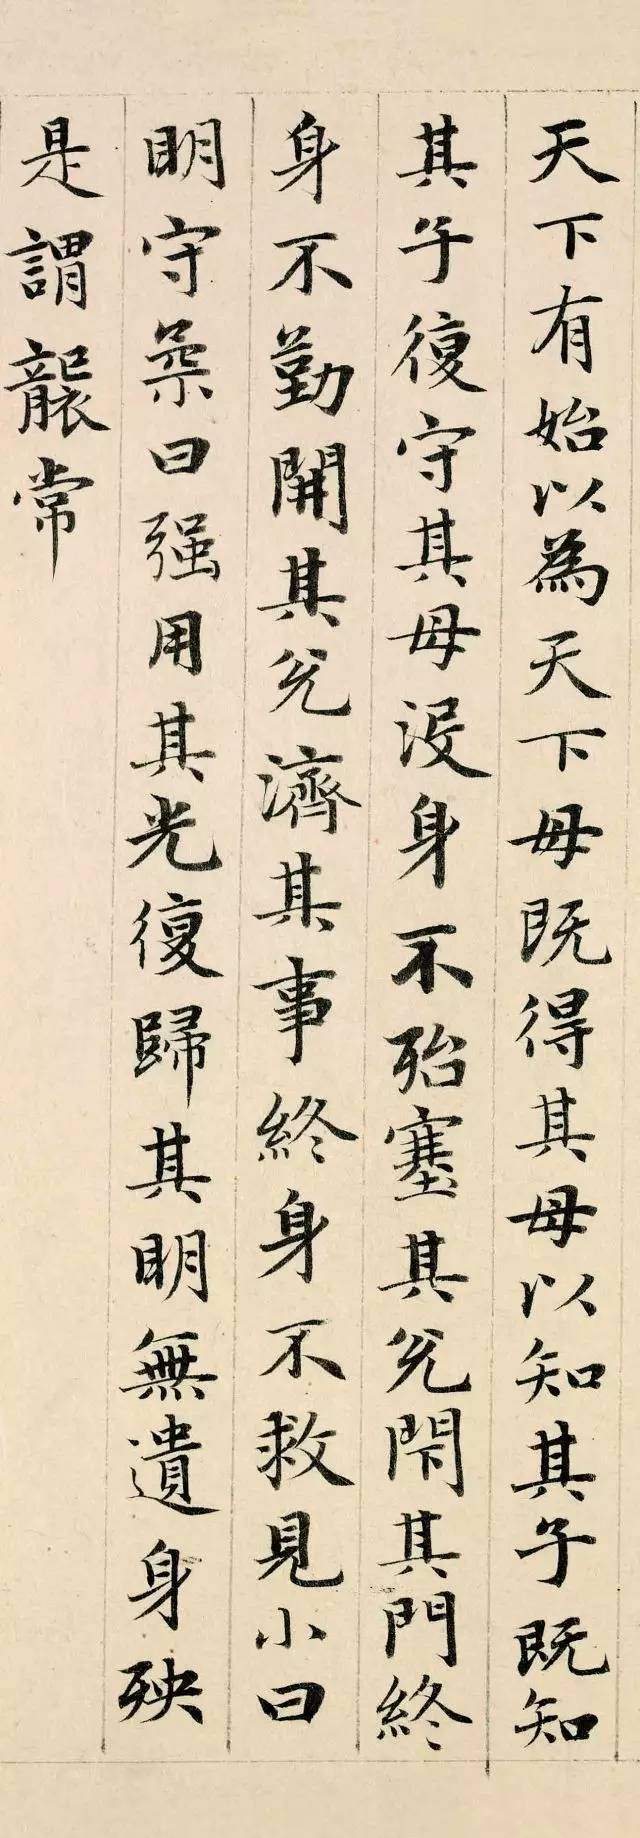 天下有始以為天下母既得其母以知其子既知
其子復守其母没身不殆塞其兊閇其門終
身不勤開其兊濟其事終身不救見小曰
明守柔曰强用其光復歸其明無遺身殃
是謂襲常